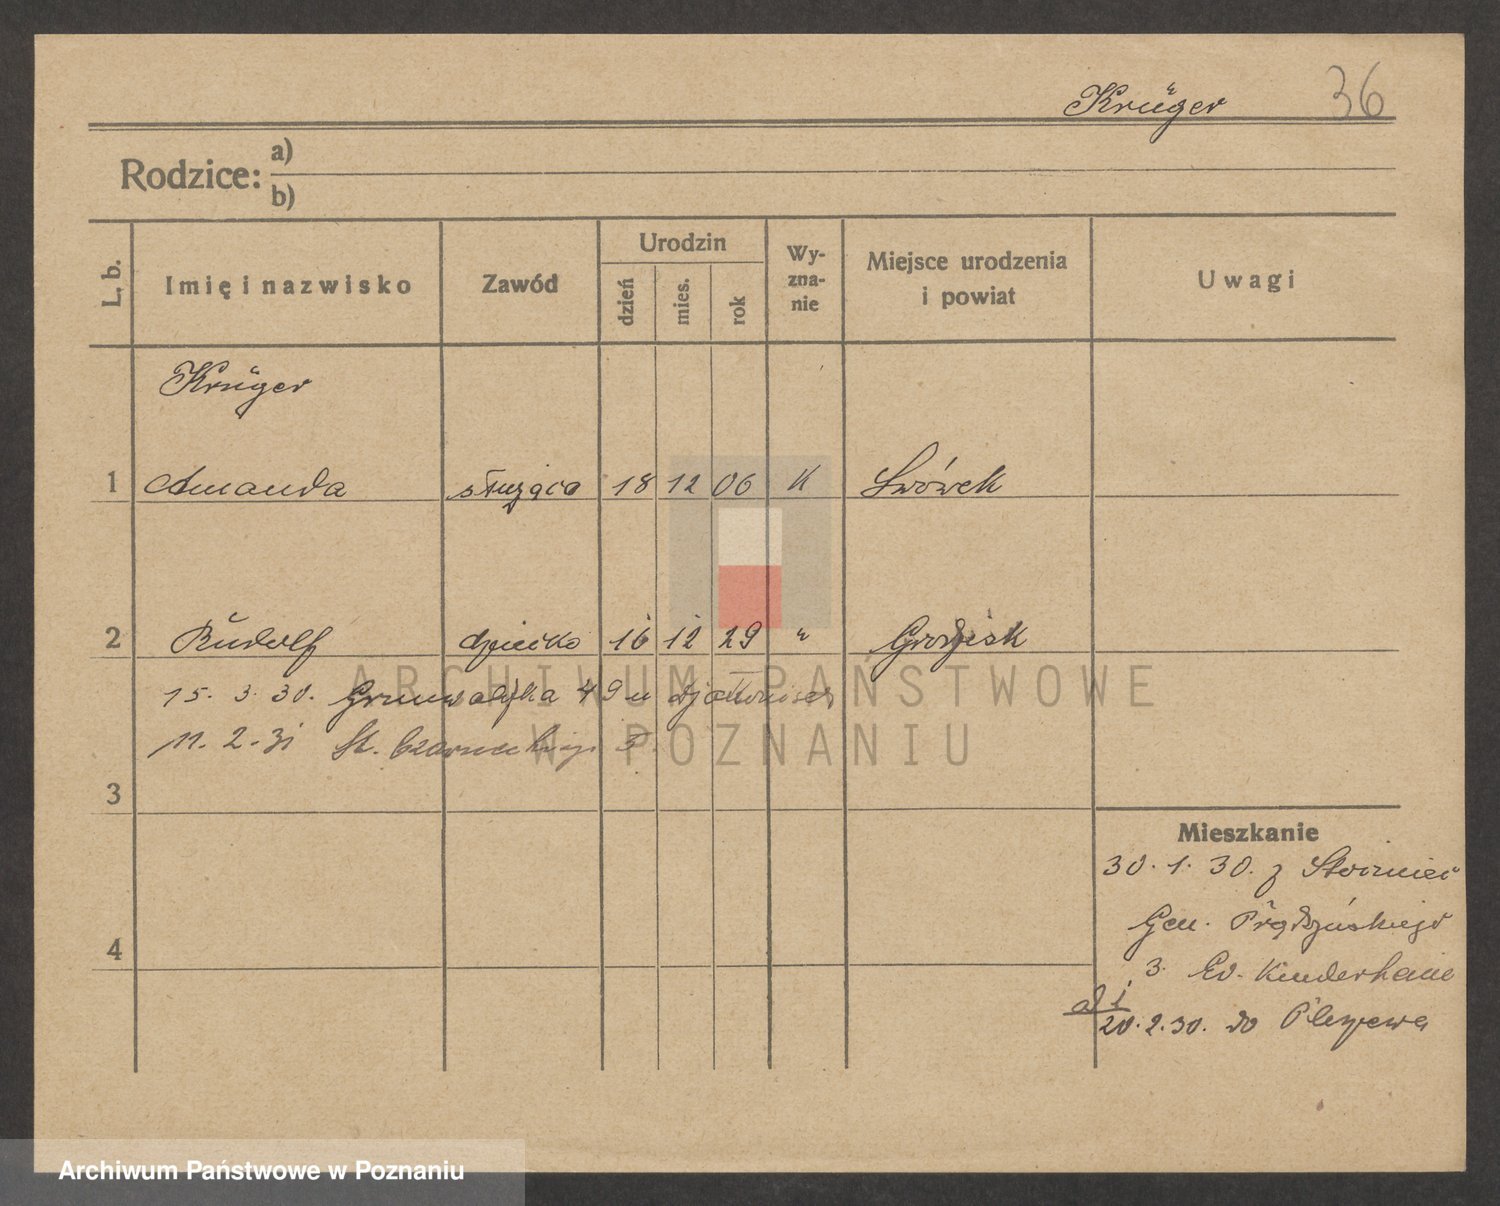 Krüger 36
Rodzice: a)
b)
L. b. Imię i nazwisko Zawód Urodzin dzień mies. rok Wy-zna-nie Miejsce urodzenia i powiat Uwagi
Krüger
1 Amanda służąca 18 12 06 K Lwówek
2 Rudolf dziecko 16 12 29 " Grodzisk
15. 3. 30. Grunwaldzka 49 u
11. 2. 31 St. Czarneckiego 5
3
Mieszkanie
30. 1. 30. z
Gen. Prądzyńskiego
4
3. Ev. Kinderheim
20. 2. 30. do Pleszewa
ARCHIWUM PAŃSTWOWE
W POZNANIU
Archiwum Państwowe w Poznaniu